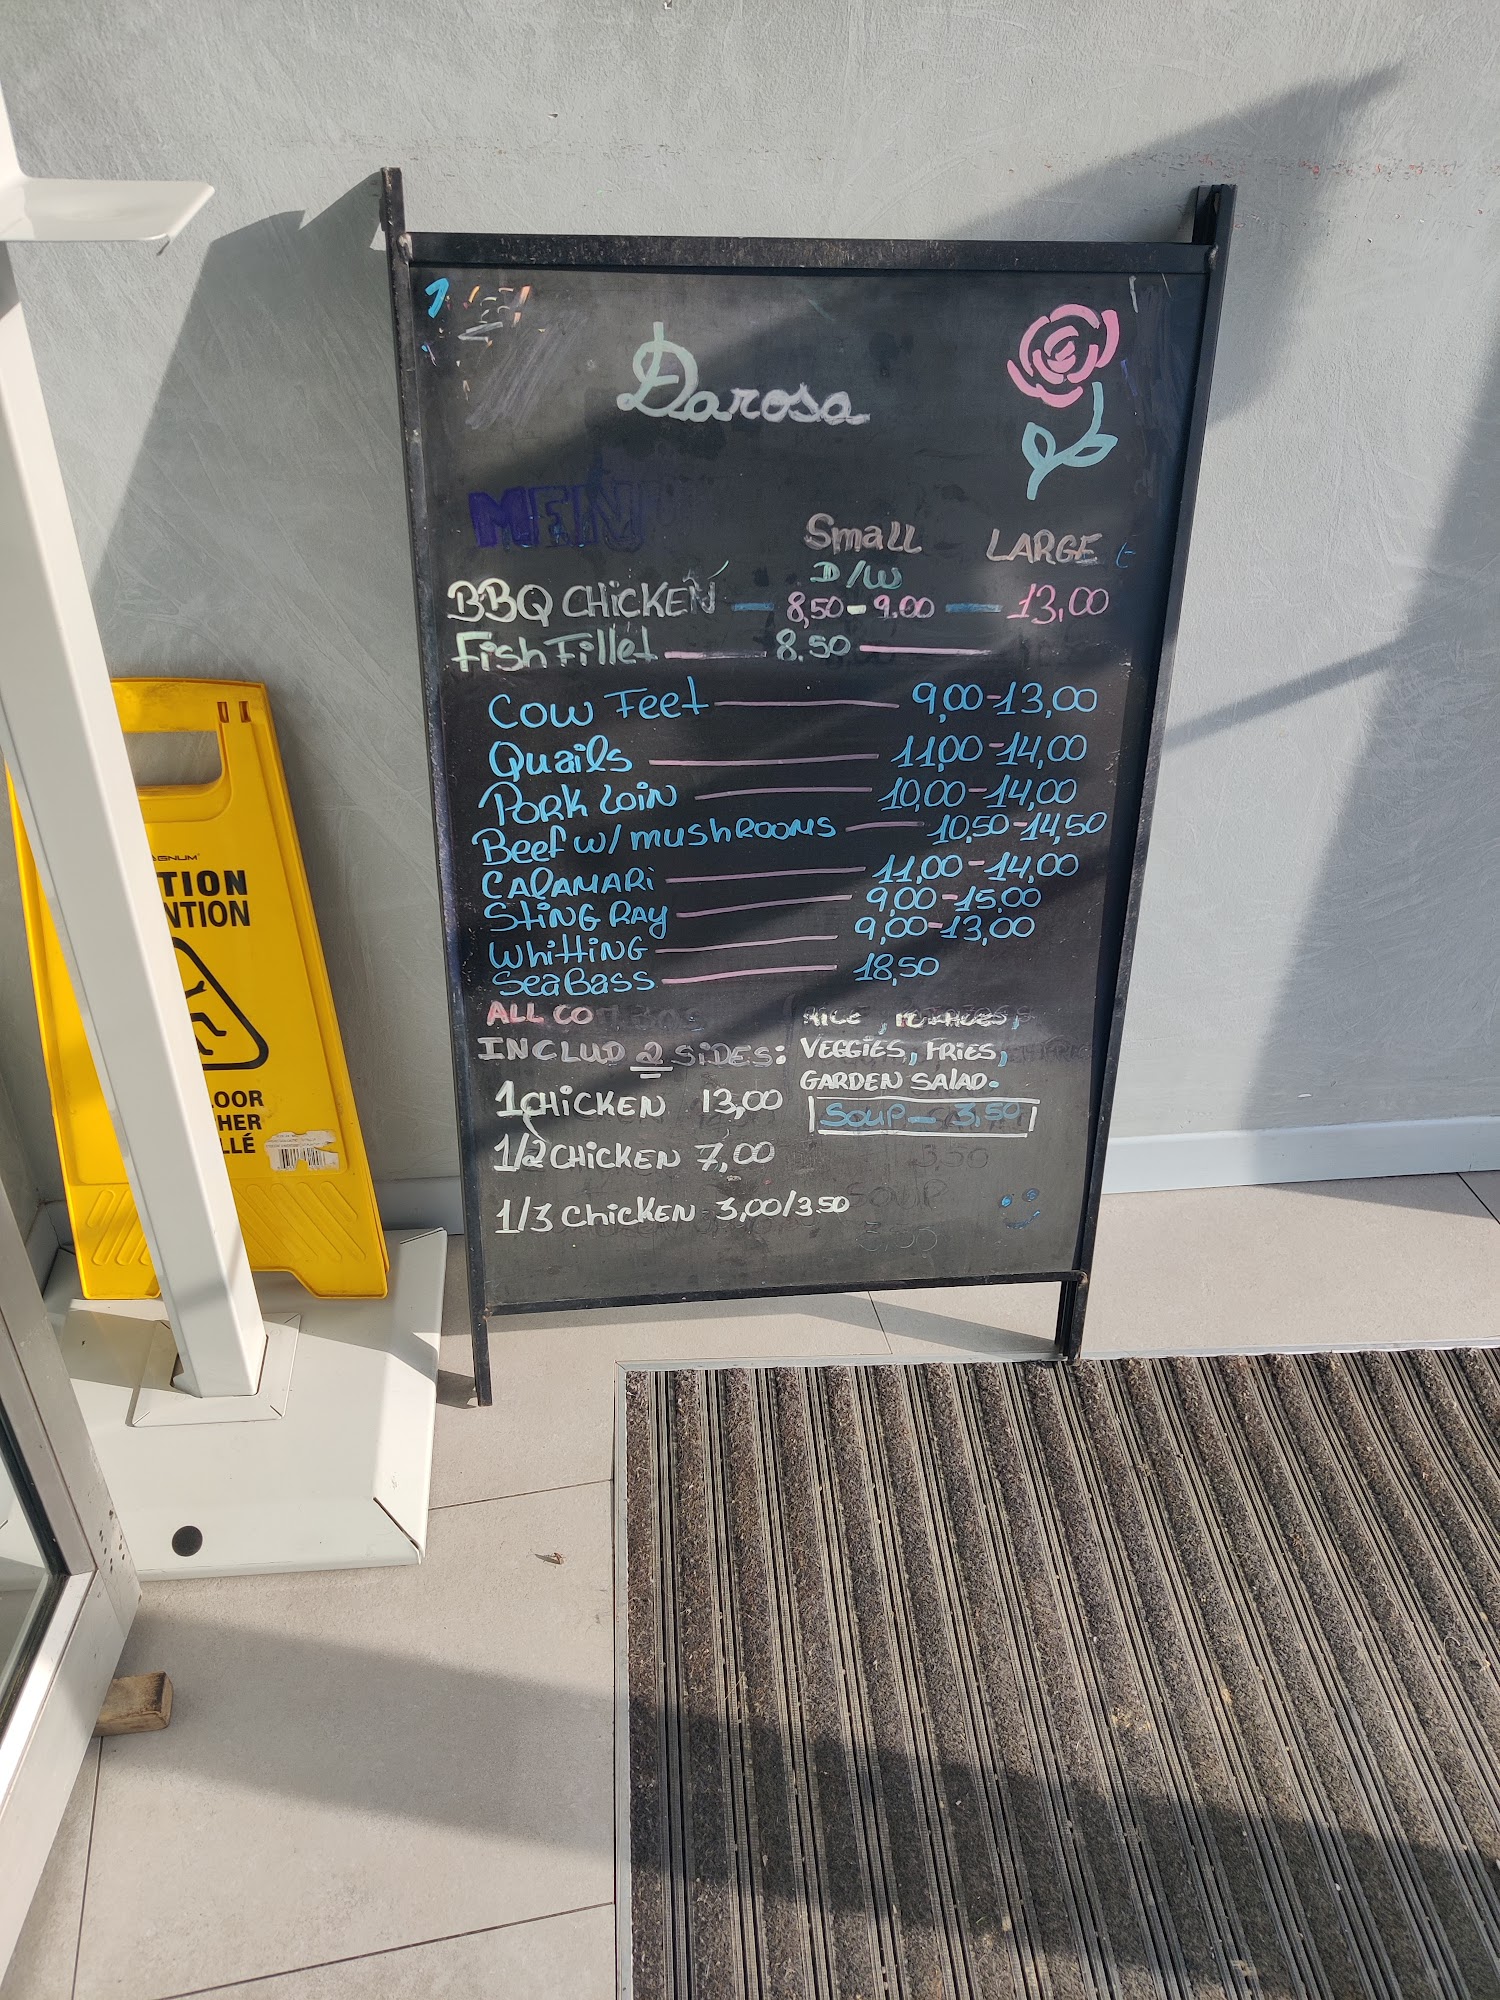 Darosa
MENU
Small LARGE
D/W
BBQ CHiCKEN 8,50-9.00 13,00
Fish Fillet 8.50
Cow Feet 9,00-13,00
Quails 11,00-14,00
PORK LoiN 10,00-14,00
Beef w/ mushROOMS 10,50-14,50
CALAMARi 11,00-14,00
StiNG RAY 9,00-15,00
WhittiNG 9,00-13,00
Sea BASS 18,50
ALL CO
INCLUD 2 SiDES:
RICE, POTATOES,
VEGGiES, FRiES,
GARDEN SALAD.
SOUP - 3,50
1 CHiCKEN 13,00
1/2 CHiCKEN 7,00
1/3 ChicKEN 3,00/3.50
3,50
SOUP
3,50
GNUM
TION
NTION
OOR
HER
LLÉ